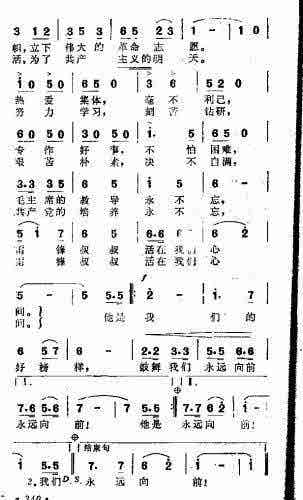 3 1 2 3 5 3 5 6 5 2 3 1 - 1 0
朝,立下 伟大的 革命 志 愿。
活,为了 共产 主义的 明 天。
1 0 5 0 6 5 0 1 1 0 5 0 6 5 0
热 爱 集体, 毫 不 利己,
努 力 学习, 刻 苦 钻研,
6 0 5 0 3 0 5 0 1. 5 6 5 0
专 作 好 事, 不 怕 困难,
艰 苦 朴 素, 决 不 自满,
3.3 3 5 6 5 3 1 5 6 -
毛主 席的 教 导 永 不 忘,
共产 党的 培 养 永 不 忘,
5 1 7 6 5 3 2.3 5 5 6
雷 锋 叔 叔 活在 我们 心
雷 锋 叔 叔 活在 我们 心
f
5 - 5 5.5 2 - 1. 7
间。 他是 我 们 的
间。
6 5 7 6 - 2.2 3.3 5.5 6.6
好 榜 样, 鼓舞 我们 永远 向前
1.
7.6 5.6 7 - 7 5.5 7.6 5.6
永远 向 前! 他是 永远 向
2.
1 - 1 5.5 7 7 6 5 1 -
结束句
2.我们 D.S. 永 远 向 前!
· 240 ·